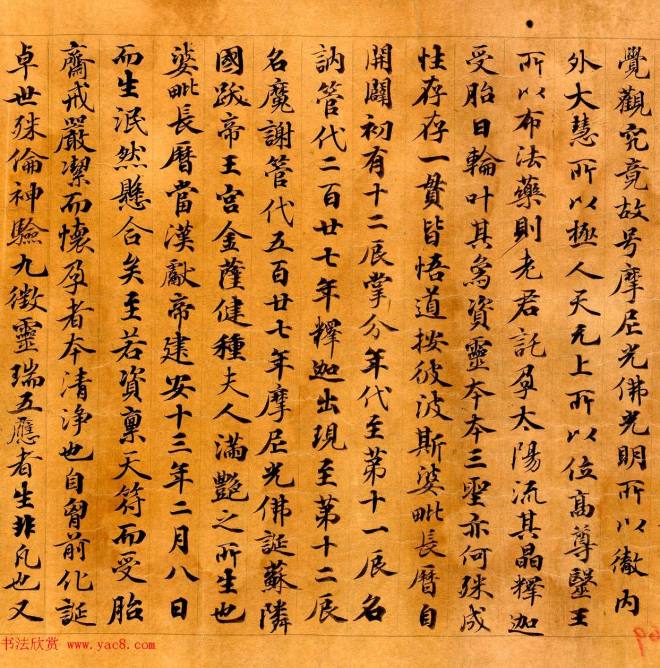 覺觀究竟故号摩尼光佛光明所以徹內
外大慧所以極人天无上所以位髙尊毉王
所以布法藥則老君託孕太陽流其晶釋迦
受胎日輪叶其爲資靈夲夲三聖亦何殊成
性存存一貫皆悟道按彼波斯婆毗長曆自
開闢初有十二辰掌分年代至第十一辰名
訥管代二百廿七年釋迦出現至第十二辰
名魔謝管代五百廿七年摩尼光佛誕蘇隣
國跋帝王宮金薩健種夫人滿艷之所生也
婆毗長曆當漢獻帝建安十三年二月八日
而生泯然懸合矣至若資稟天符而受胎
齋戒嚴潔而懷孕者夲清浄也自胷前化誕
卓世殊倫神驗九徵靈瑞五應者生非凡也又
书法欣赏 www.yac8.com